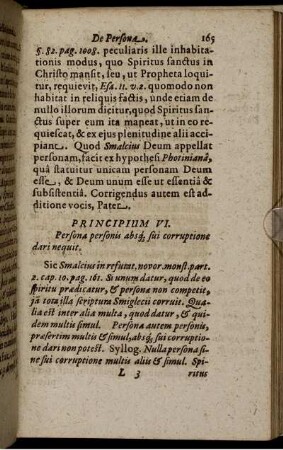 De Persona. 165
§. 82. pag. 1008. peculiaris ille inhabitationis modus, quo Spiritus sanctus in
Christo mansit, seu, ut Propheta loquitur, requievit, Esa. 11. v. 2. quomodo non
habitat in reliquis factis, unde etiam de
nullo illorum dicitur, quod Spiritus sanctus super eum ita maneat, ut in eo requiescat, & ex ejus plenitudine alii accipiant. Quod Smalcius Deum appellat
personam, facit ex hypothesi Photinianâ,
quâ statuitur unicam personam Deum
esse, & Deum unum esse ut essentiâ &
subsistentiâ. Corrigendus autem est additione vocis, Pater.
PRINCIPIUM VI.
Persona personis absq; sui corruptione
dari nequit.
Sic Smalcius in refutat. novor. monst. part.
2. cap. 10. pag. 161. Si unum datur, quod de eo
spiritu prædicatur, & personæ non competit,
jã tota illa scriptura Smiglecii corruit. Qualia est inter alia multa, quod datur, & quidem multis simul. Persona autem personis,
præsertim multis & simul, absq; sui corruptione dari non potest. Syllog. Nulla persona sine sui corruptione multis aliis & simul. Spi-
L 3 ritus